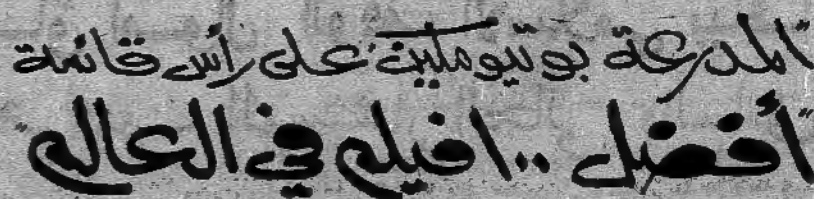 "المدرعة بوتيومكين" على رأس قائمة
"أفضل ١٠ افيلم في العالم"